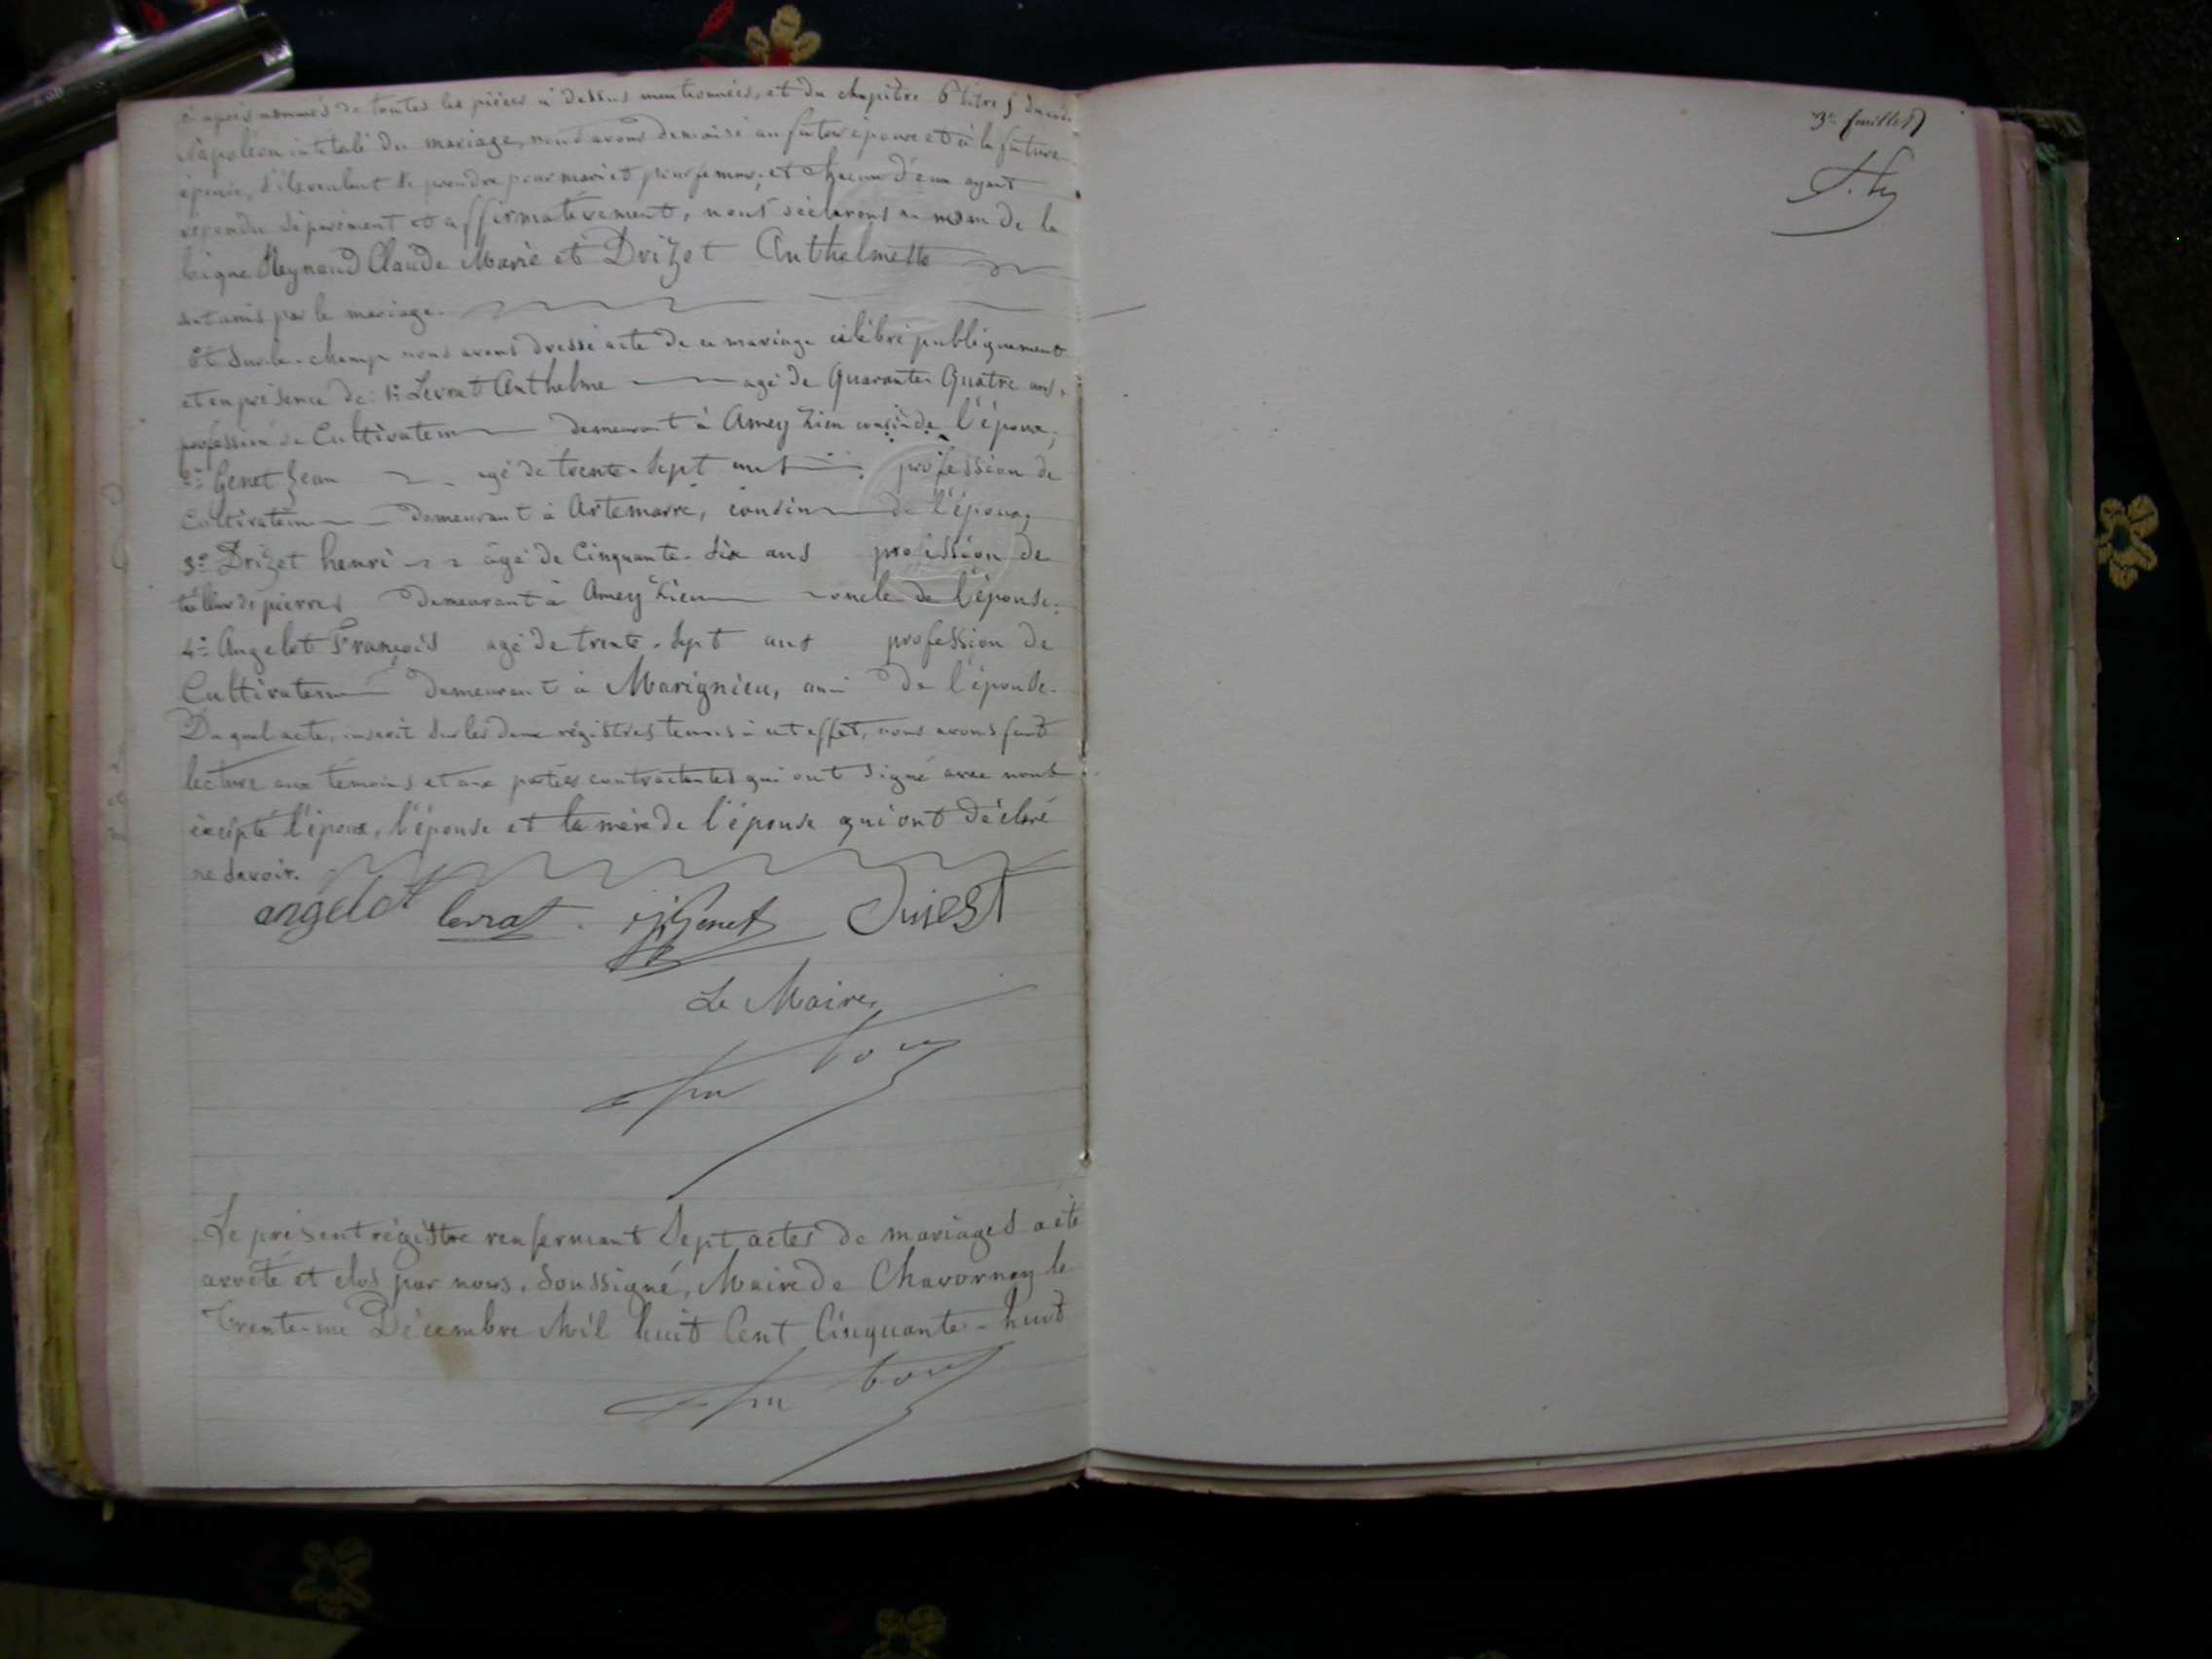 ci après nommés de toutes les pièces ci dessus mentionnées, et du chapitre 6 titre 5 du code
Napoléon intitulé du mariage, nous avons demandé au futur époux et à la future
épouse, s'ils veulent se prendre pour mari et pour femme; et chacun d'eux ayant
répondu séparément et affirmativement, nous déclarons au nom de la
loi que Reynaud Claude Marie et Drizet Anthelmette
sont unis par le mariage.
Et sur-le-champ nous avons dressé acte de ce mariage célébré publiquement
et en présence de: 1º Levrat Anthelme agé de Quarante-Quatre ans,
profession de Cultivateur demeurant à Ameyzieu cousin de l'époux,
2º Genet Jean agé de trente-sept ans profession de
Cultivateur demeurant à Artemarre, cousin de l'époux,
3º Drizet henri âgé de Cinquante-six ans profession de
tailleur de pierres demeurant à Ameyzieu oncle de l'épouse.
4º Angelot François agé de trente-sept ans profession de
Cultivateur demeurant à Marignieu, ami de l'épouse.
Duquel acte, inscrit sur les deux régistres tenus à cet effet, nous avons fait
lecture aux témoins et aux parties contractantes qui ont signé avec nous
excepté l'époux, l'épouse et la mère de l'épouse qui ont déclaré
ne savoir.
angelot levrat Genet
Le Maire,
Le présent régistre renfermant Sept actes de mariages a été
arrêté et clos par nous, soussigné, Maire de Chavornay le
Trente-un Décembre Mil huit Cent Cinquante-huit
3e feuillet